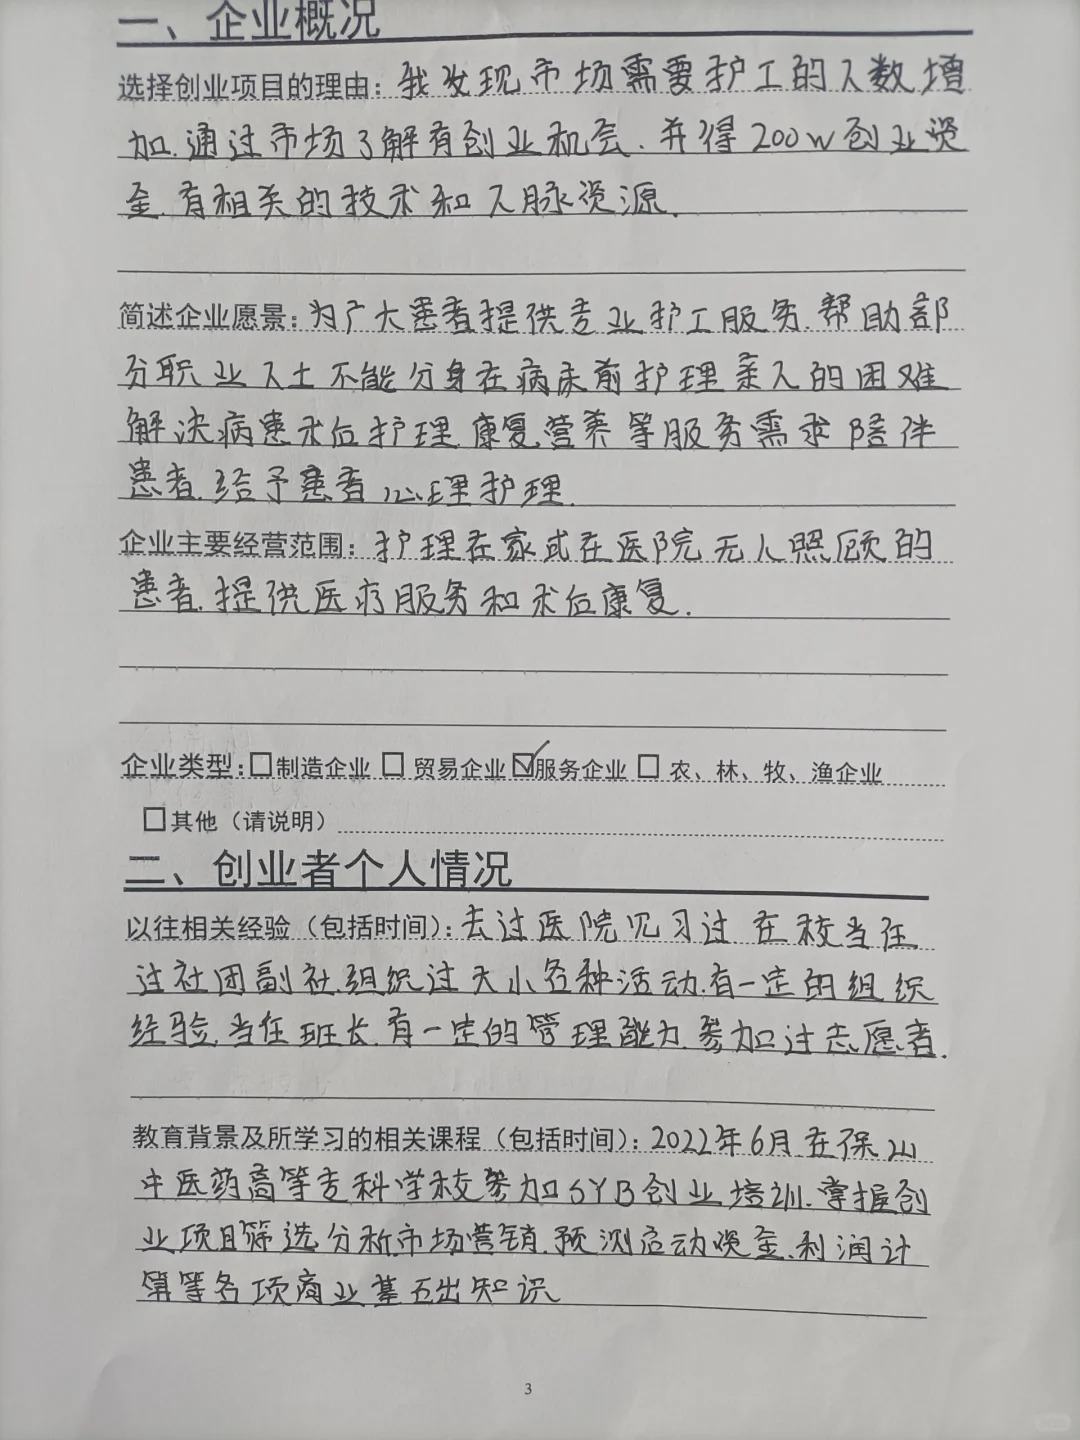 一、企业概况
选择创业项目的理由：我发现市场需要护工的人数增
加.通过市场了解有创业机会.并得200w创业资
金.有相关的技术和人脉资源.
简述企业愿景：为广大患者提供专业护工服务.帮助部
分职业人士不能分身在病床前护理亲人的困难
解决病患术后护理.康复.营养等服务需求陪伴
患者.给予患者心理护理.
企业主要经营范围：护理在家或在医院无人照顾的
患者.提供医疗服务和术后康复.
企业类型：□制造企业 □ 贸易企业 ☑服务企业 □ 农、林、牧、渔企业
□其他（请说明）
二、创业者个人情况
以往相关经验（包括时间）：去过医院见习过 在校当任
过社团副社.组织过大小各种活动.有一定的组织
经验.当任班长.有一定的管理能力.参加过志愿者.
教育背景及所学习的相关课程（包括时间）：2022年6月在保山
中医药高等专科学校参加SYB创业培训.掌握创
业项目筛选分析市场营销.预测启动资金.利润计
算等各项商业基础知识
3